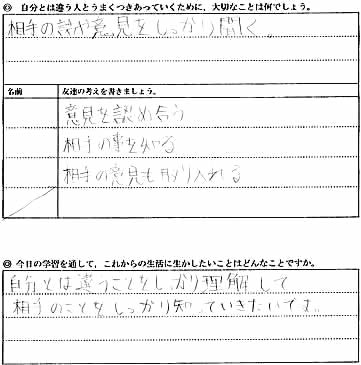 ◎ 自分とは違う人とうまくつきあっていくために、大切なことは何でしょう。
相手の話や意見をしっかり聞く。
名前 友達の考えを書きましょう。
意見を認め合う
相手の事を知る
相手の意見も取り入れる
◎ 今日の学習を通して、これからの生活に生かしたいことはどんなことですか。
自分とは違うことをしっかり理解して
相手のことをしっかり知っていきたいです。